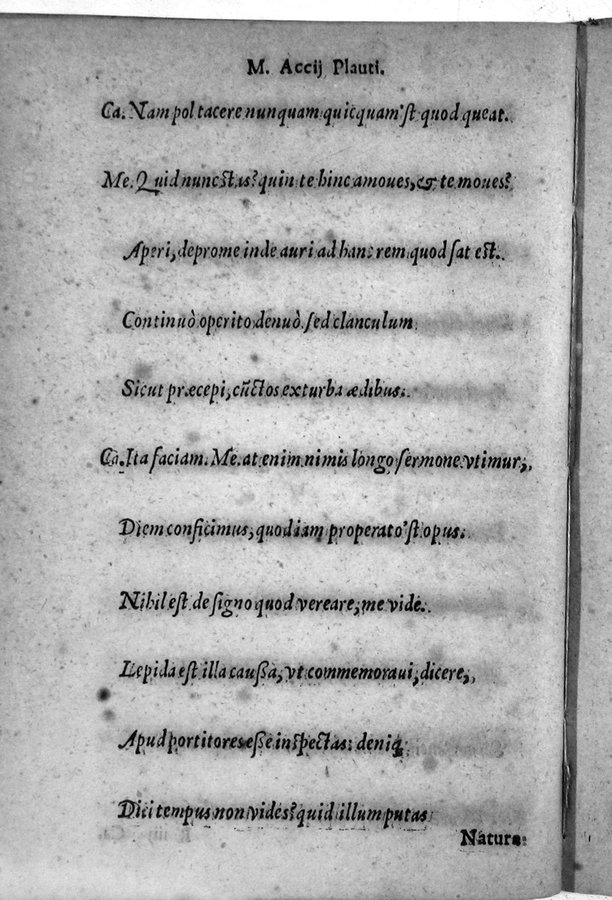 M. Accij Plauti.
Ca. Nam pol tacere nunquam quicquam'st quod queat.
Me. Quid nunc stas? quin te hinc amoues, & te moues?
Aperi, deprome inde auri ad hanc rem quod sat est.
Continuò operito denuò. sed clanculum
Sicut præcepi, cūctos exturba ædibus.
Ca. Ita faciam. Me. at enim nimis longo sermone vtimur,
Diem conficimus, quod iam properato'st opus.
Nihil est de signo quod vereare, me vide.
Lepida est illa caussa, vt commemoraui, dicere,
Apud portitores esse inspectas: deniq;
Dici tempus non vides? quid illum putas
Natura: